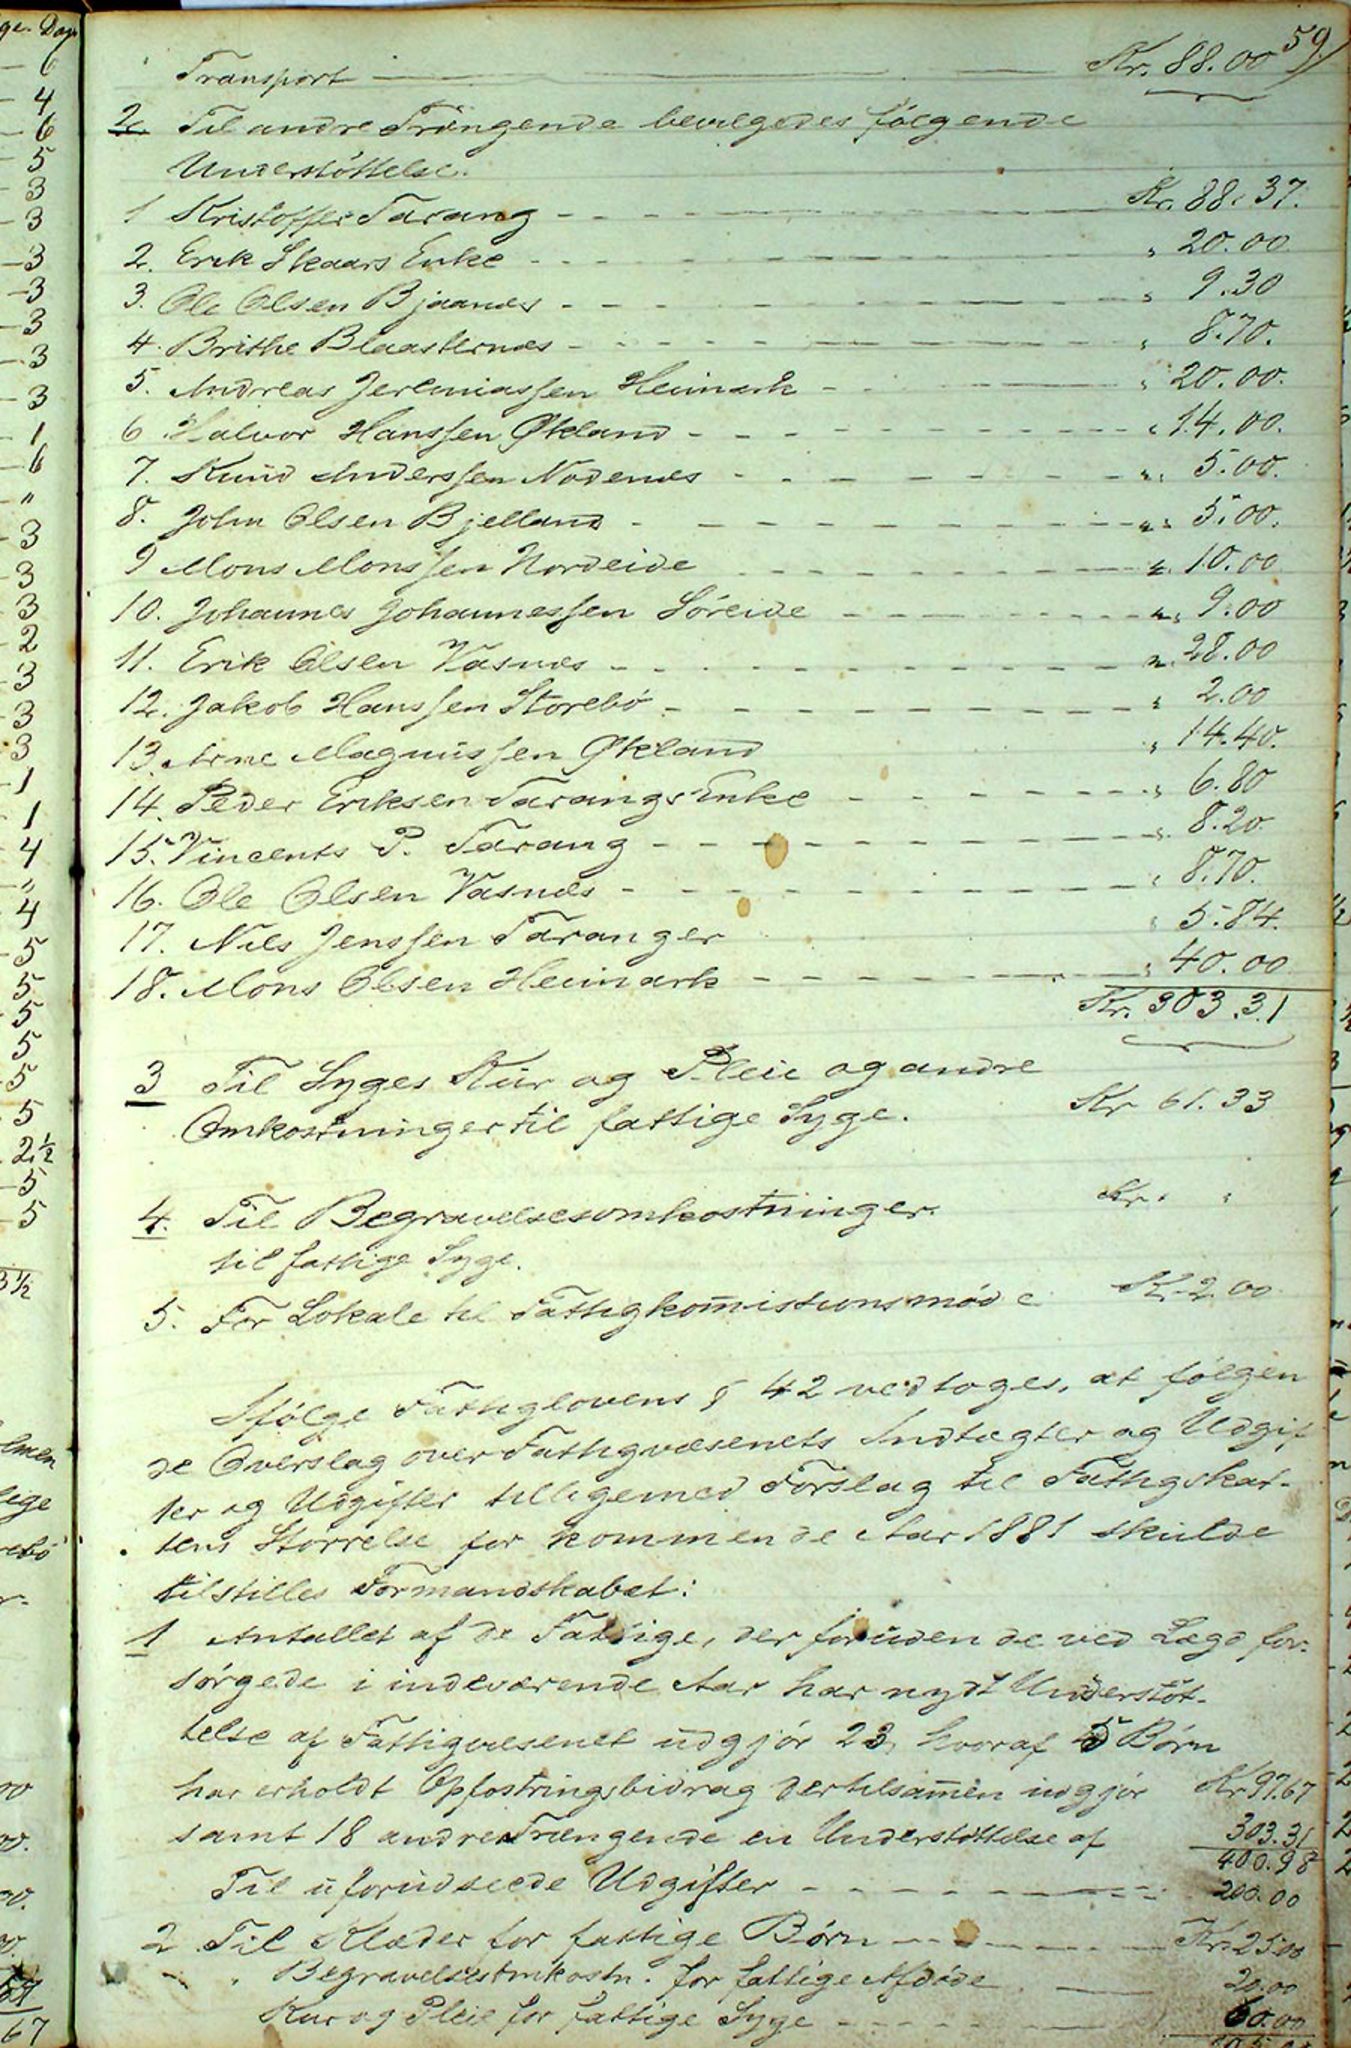 59
Transport Kr. 88.00
2. Til andre Trængende bevilgedes følgende
Understøttelse.
1 Kristoffer Tarang - - - Kr. 88.37.
2. Erik Skaars Enke - - - " 20.00
3. Ole Olsen Bjaanæs - - - " 9.30
4. Brithe Blaasternæs - - - " 8.70.
5. Andreas Jeremiassen Heimark - - - " 20.00.
6 Halvor Hanssen Økland - - - " 14.00.
7. Knud Anderssen Nodenæs - - - " 5.00.
8. John Olsen Bjelland - - - " 5.00.
9 Mons Monssen Nordeide - - - " 10.00
10. Johannes Johannessen Søreide - - - " 9.00
11. Erik Olsen Vasnæs - - - " 28.00
12. Jakob Hanssen Storebø - - - " 2.00
13. Arne Magnussen Økland " 14.40.
14. Peder Eriksen Tarangs Enke - - - " 6.80
15. Vincents P. Tarang - - - " 8.20
16. Ole Olsen Vasnæs - - - " 8.70.
17. Nils Jenssen Taranger " 5.84.
18. Mons Olsen Heimark - - - " 40.00
Kr. 303.31
3 Til Syges Kur og Pleie og andre
Omkostninger til fattige Syge. Kr 61.33
4. Til Begravelsesomkostninger Kr. "
til fattige Syge.
5. For Lokale til Fattigkommissionsmøde Kr 2.00
Ifølge Fattiglovens § 42 vedtoges, at følgen
de Overslag over Fattigvæsenets Indtægter og Udgif
ter og Udgifter tilligemed Forslag til Fattigskat-
tens Størrelse for kommende Aar 1881 skulde
tilstilles Formandskabet:
1 Antallet af de Fattige, der foruden de ved Lægd for-
sørgede i indeværende Aar har nydt Understøt-
telse af Fattigvæsenet udgjør 23, hvoraf 5 Børn
har erholdt Opfostringsbidrag der tilsammen udgjør Kr 97.67
samt 18 andre Trængende en Understøttelse af 303.31
400.98
Til uforudseede Udgifter - - - 200.00
2 Til Klæder for fattige Børn - - - Kr. 25.00
" Begravelsesomkostn. for fattige Afdøde 20.00
Kur og Pleie for fattige Syge - - - 60.00